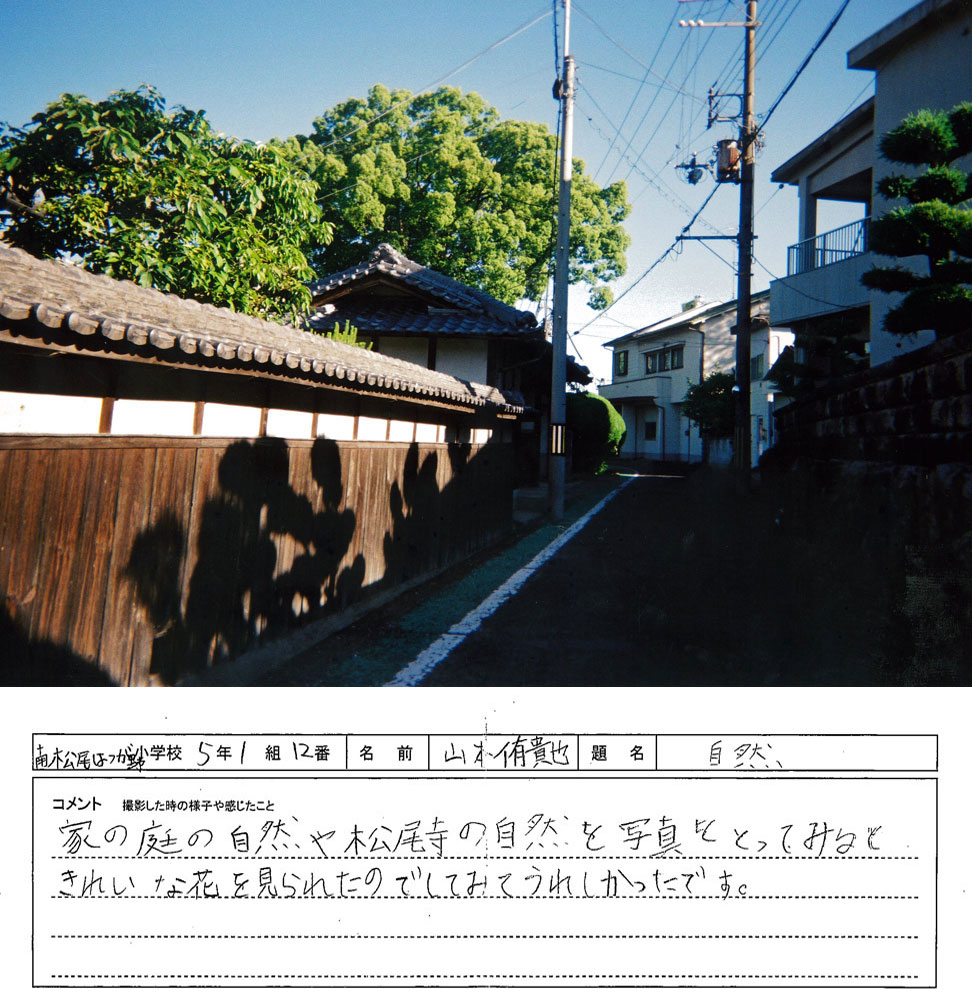 南松尾はつが野小学校 5年1組12番 名前 山本侑貴也 題名 自然
コメント 撮影した時の様子や感じたこと
家の庭の自然や松尾寺の自然を写真をとってみると
きれいな花を見られたのでしてみてうれしかったです。